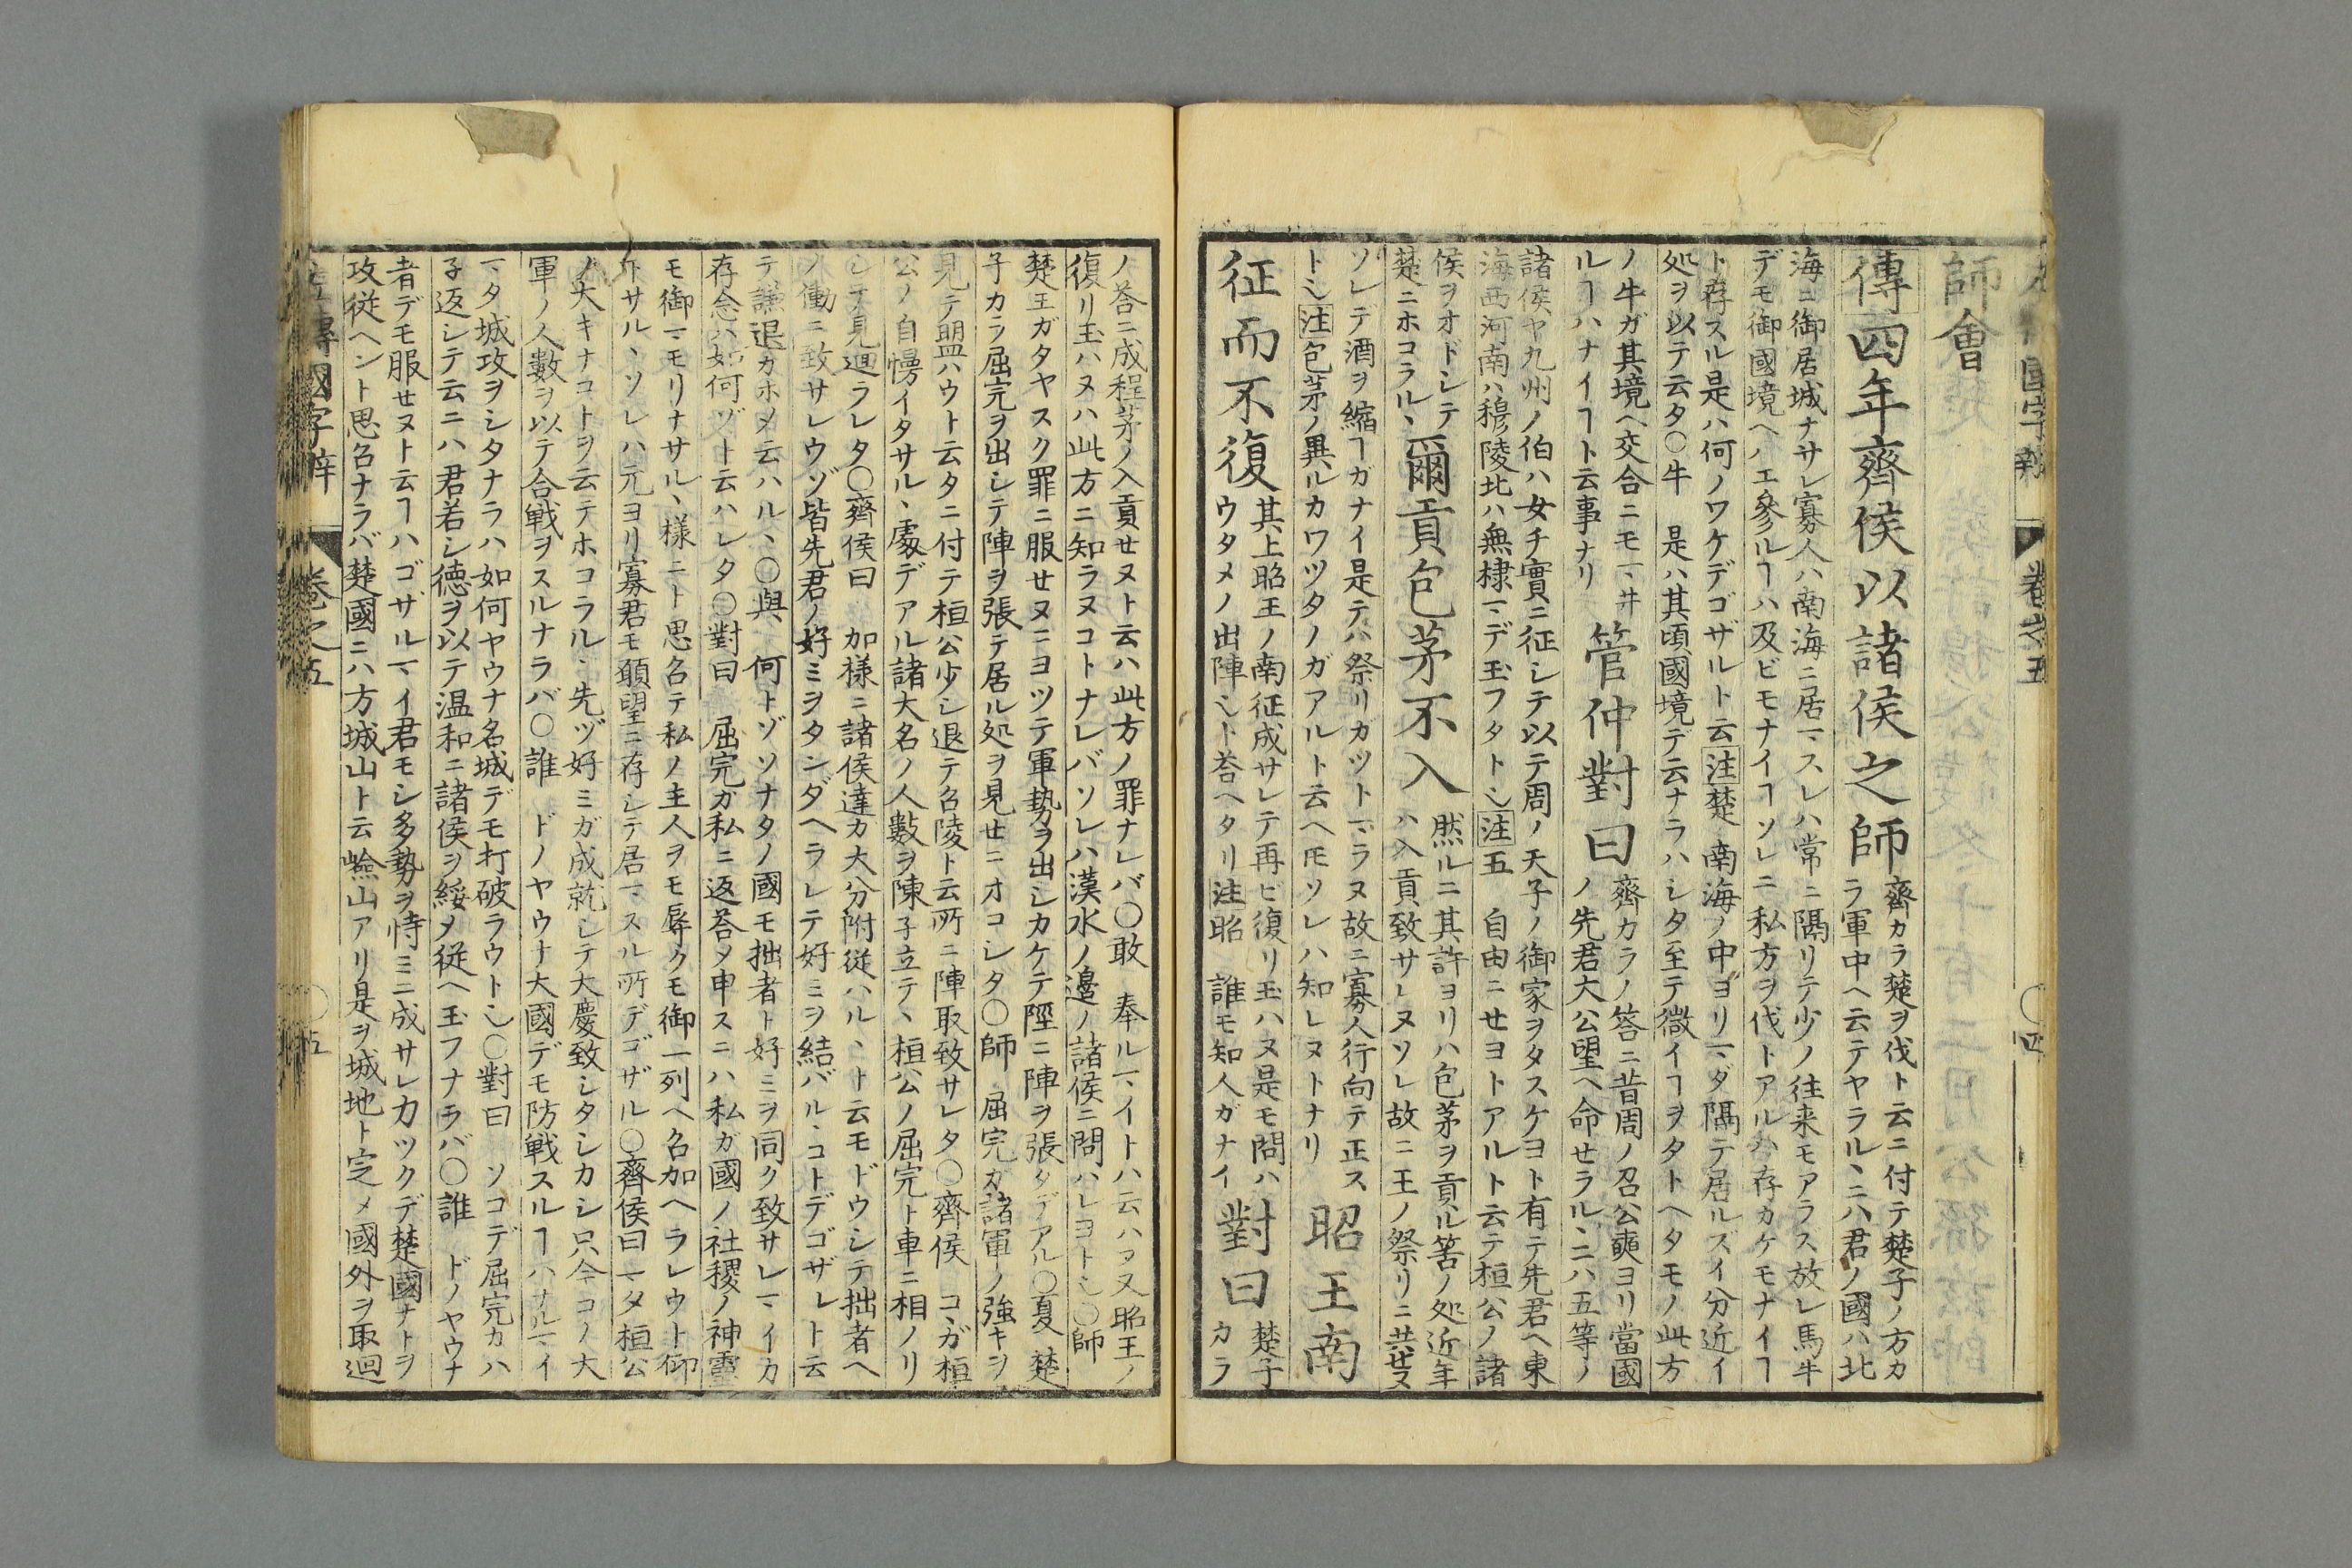 國字辨 卷之五 〇四
師會
傳四年齊侯以諸侯之師
齊カラ楚ヲ伐ト云ニ付テ楚子ノ方カ
ラ軍中ヘ云テヤラルヽニハ君ノ國ハ北
海ニ御居城ナサレ寡人ハ南海ニ居マスレハ常ニ隔リテ少ノ往来モアラス放レ馬牛
デモ御國境ヘハエ參ルヿハ及ビモナイヿソレニ私方ヲ伐トアルハ存カケモナイヿ
ト存スル是ハ何ノワケデゴザルト云注楚 南海ノ中ヨリマダ隔テ居ルズイ分近イ
処ヲ以テ云タ〇牛 是ハ其頃國境デ云ナラハシタ至テ微イヿヲタトヘタモノ此方
ノ牛ガ其境ヘ交合ニモマヰ
ルヿハナイヿト云事ナリ
管仲對曰
齊カラノ答ニ昔周ノ召公奭ヨリ當國
ノ先君大公望ヘ命セラルヽニハ五等ノ
諸侯ヤ九州ノ伯ハ女チ實ニ征シテ以テ周ノ天子ノ御家ヲタスケヨト有テ先君ヘ東
海西河南ハ穆陵北ハ無棣マデ玉フタト乄注五 自由ニセヨトアルト云テ桓公ノ諸
侯ヲオドシテ
楚ニホコラルヽ
爾貢包茅不入
然ルニ其許ヨリハ包茅ヲ貢ル筈ノ処近年
ハ入貢致サレヌソレ故ニ王ノ祭リニ共セヌ
ソレデ酒ヲ縮ヿガナイ是テハ祭リガツトマラヌ故ニ寡人行向テ正ス
ト乄注包茅ノ異ルカワツタノガアルト云ヘ𪜈ソレハ知レヌトナリ
昭王南
征而不復
其上昭王ノ南征成サレテ再ビ復リ玉ハヌ是モ問ハ
ウタメノ出陣乄ト答ヘタリ注昭 誰モ知人ガナイ
對曰
楚子
カラ
ノ荅ニ成程茅ノ入貢セヌト云ハ此方ノ罪ナレバ〇敢 奉ルマイトハ云ハヌ又昭王ノ
復リ玉ハヌハ此方ニ知ラヌコトナレバソレハ漢水ノ邊ノ諸侯ニ問ハレヨト乄〇師
楚王ガタヤスク罪ニ服セヌニヨツテ軍勢ヲ出シカケテ陘ニ陣ヲ張タデアル〇夏 楚
子カラ屈完ヲ出シテ陣ヲ張テ居ル処ヲ見セニオコシタ〇師 屈完カ諸軍ノ強キヲ
見テ盟ハウト云タニ付テ桓公少シ退テ召陵ト云所ニ陣取致サレタ〇齊侯 コヽガ桓
公ノ自慢イタサルヽ處デアル諸大名ノ人數ヲ陳子立テヽ桓公ノ屈完ト車ニ相ノリ
シテ見廻ラレタ〇齊侯曰 加様ニ諸侯達カ大分附從ハルヽト云モドウシテ拙者ヘ
ノ働ニ致サレウゾ皆先君ノ好ミヲタンダヘラレテ好ミヲ結バルヽコトデゴザレト云
テ謙退カホメ云ハルヽ〇與 何トゾソナタノ國モ拙者ト好ミヲ同ク致サレマイカ
存念ハ如何ヅト云ハレタ〇對曰 屈完ガ私ニ返荅メ申スニハ私ガ國ノ社稷ノ神靈
モ御マモリナサルヽ様ニト思召テ私ノ主人ヲモ辱クモ御一列ヘ召加ヘラレウト仰
下サルヽソレハ元ヨリ寡君モ願望ニ存シテ居マスル所デゴザル〇齊侯曰 マタ桓公
ノ大キナコトヲ云テホコラルヽ先ヅ好ミガ成就シテ大慶致シタシカシ只今コノ大
軍ノ人數ヲ以テ合戰ヲスルナラバ〇誰 ドノヤウナ大國デモ防戰スルヿハナルマイ
マタ城攻ヲシタナラハ如何ヤウナ名城デモ打破ラウト乄〇對曰 ソコデ屈完カハ
子返シテ云ニハ君若シ徳ヲ以テ温和ニ諸侯ヲ綏メ従ヘ玉フナラバ〇誰 ドノヤウナ
者デモ服セヌト云ヿハゴザルマイ君モシ多勢ヲ恃ミニ成サレ力ツクデ楚國ナトヲ
攻従ヘント思召ナラバ楚國ニハ方城山ト云嶮山アリ是ヲ城地ト定メ國外ヲ取廻
左傳國字辨 卷之五 〇五